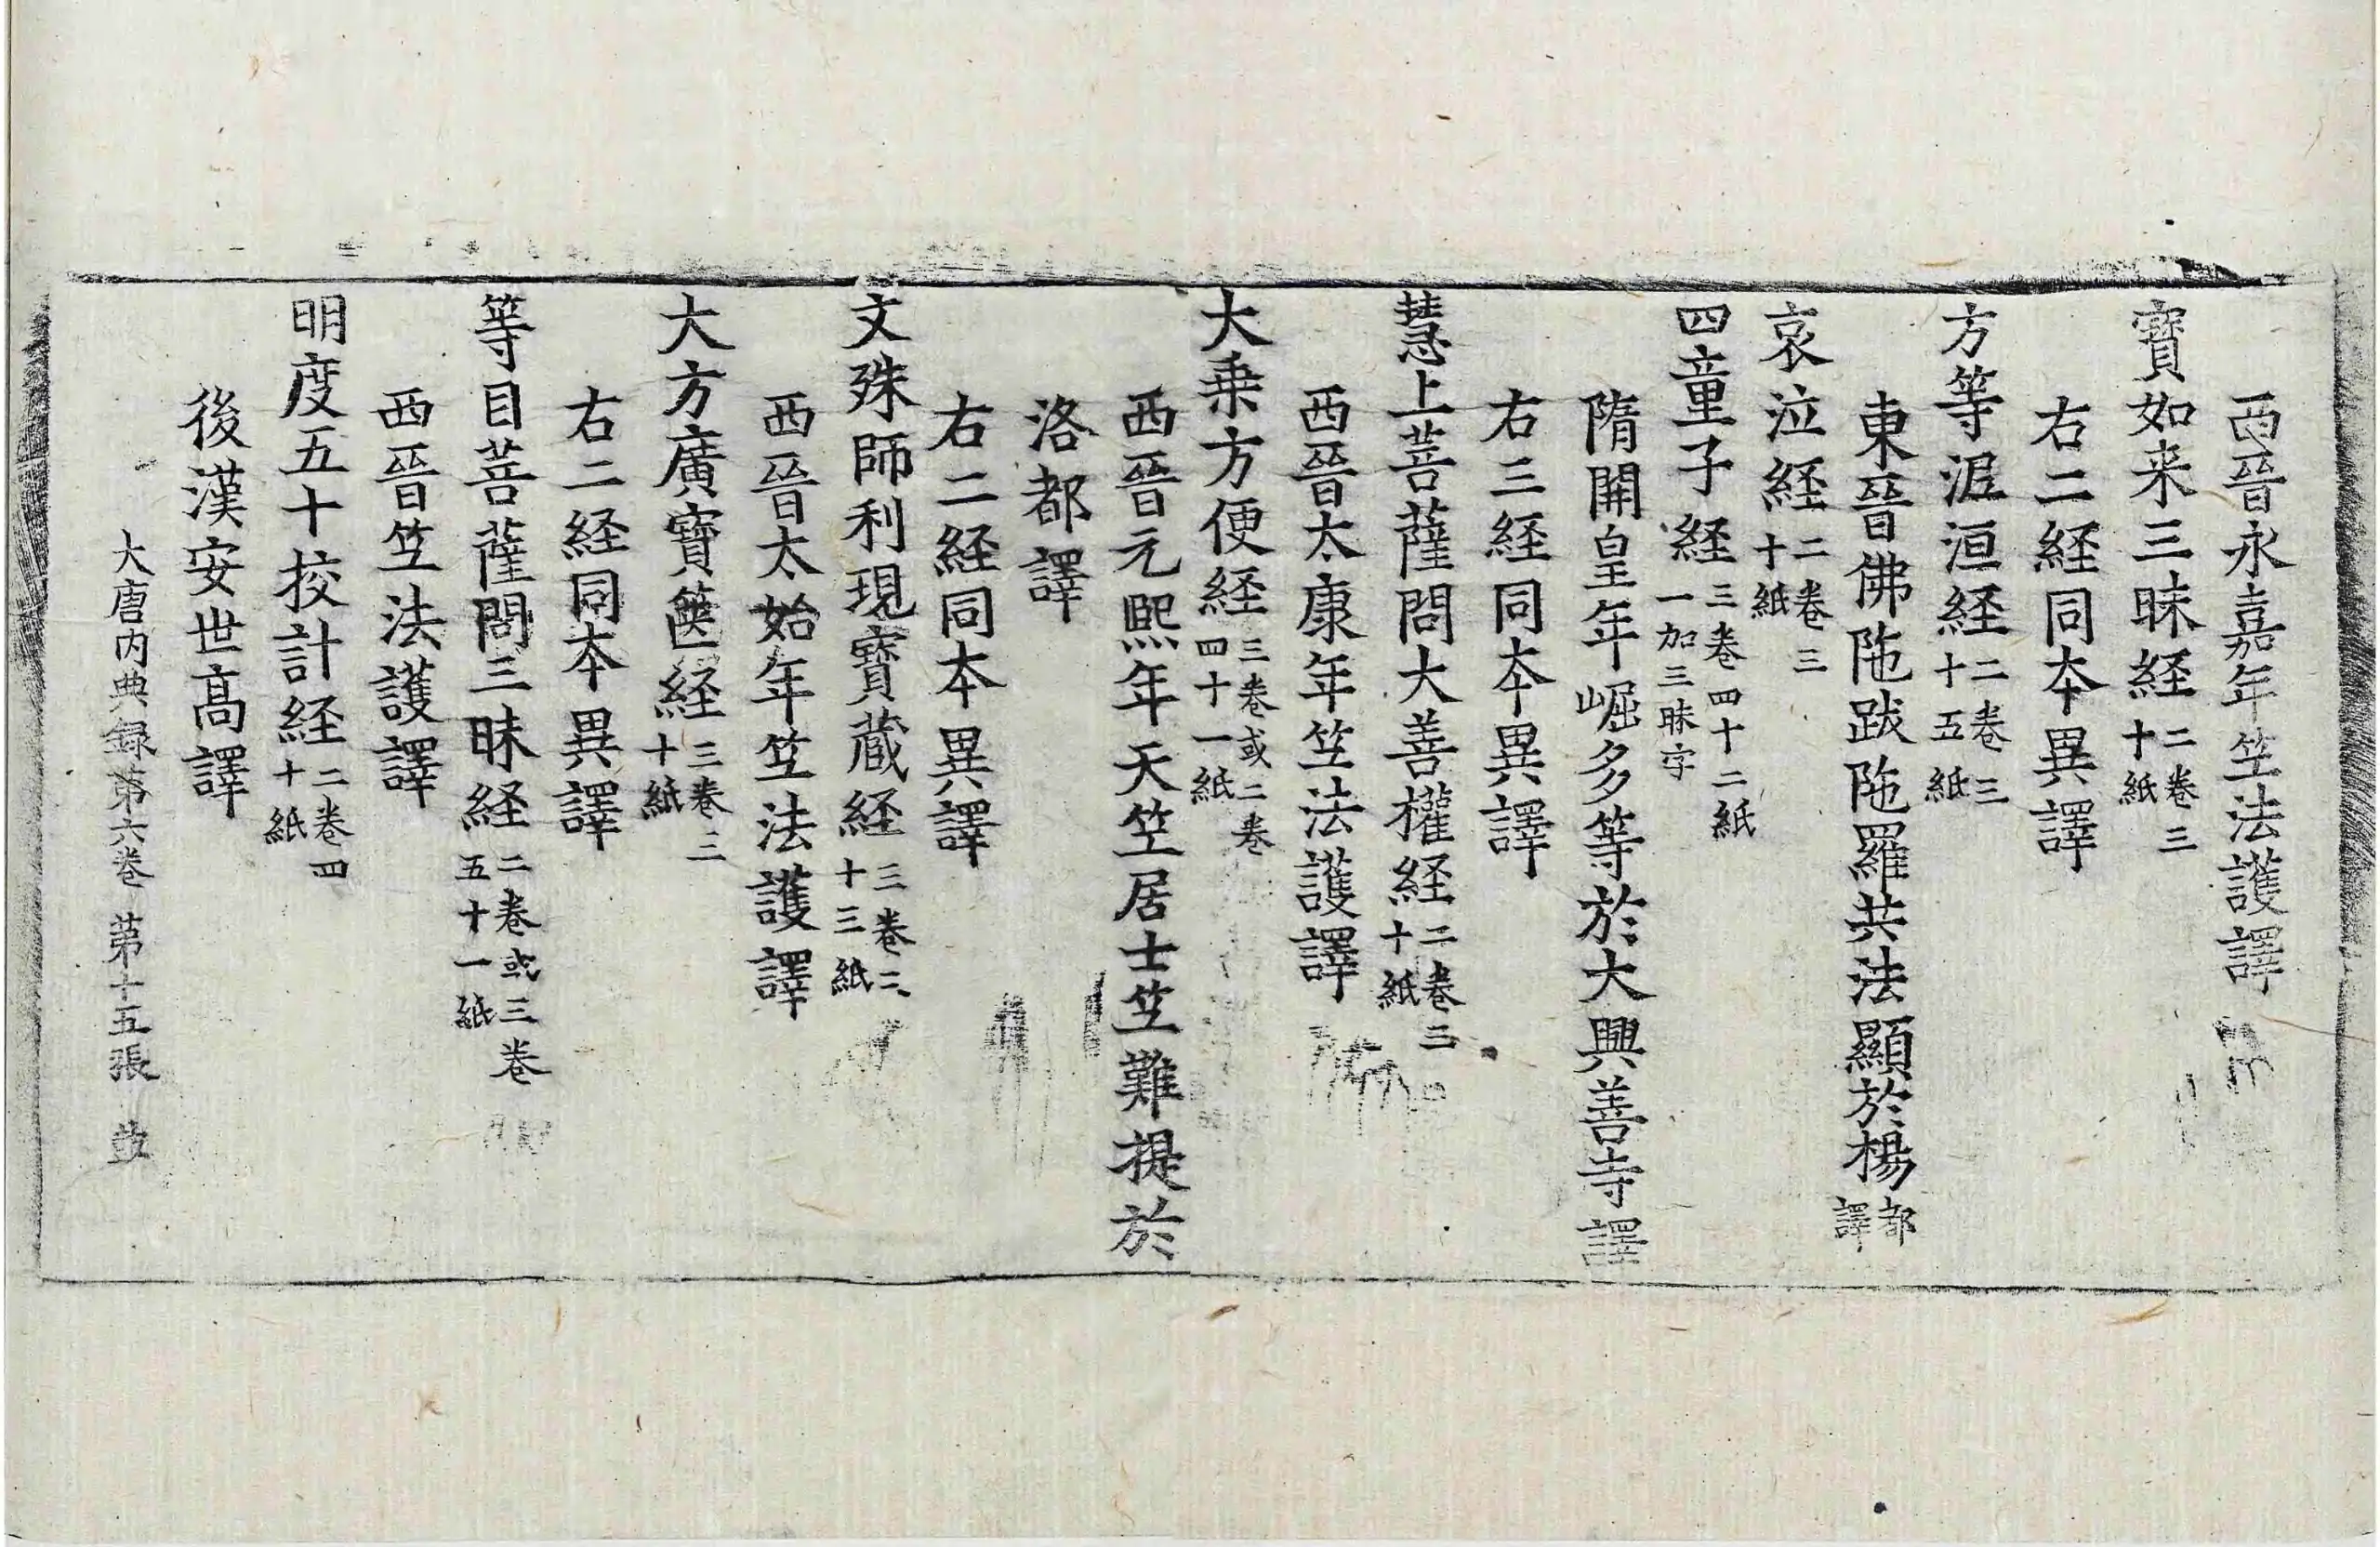 西晉永嘉年竺法護譯
寶如来三昧経二卷三十紙
右二経同本異譯
方等泥洹経二卷三十五紙
東晉佛陁跋陁羅共法顯於楊都譯
哀泣経二卷三十紙
四童子経三卷四十二紙一加三昧字
隋開皇年崛多等於大興善寺譯
右三経同本異譯
慧上菩薩問大善權経二卷三十紙
西晉太康年竺法護譯
大乗方便経三卷或二卷四十一紙
西晉元熙年天竺居士竺難提於
洛都譯
右二経同本異譯
文殊師利現寶藏経三卷二十三紙
西晉太始年竺法護譯
大方廣寶篋経三卷三十紙
右二経同本異譯
等目菩薩問三昧経二卷或三卷五十一紙
西晉竺法護譯
明度五十挍計経二卷四十紙
後漢安世高譯
大唐内典録第六卷 苐十五張